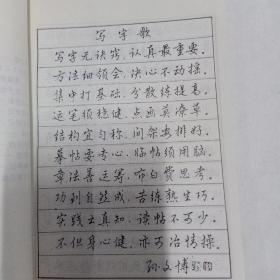 写字歌
写字无诀窍，认真最重要。
方法细领会，决心不动摇。
集中打基础，分散练提高。
运笔须稳健，点画莫潦草。
结构宜匀称，间架安排好。
摹帖要专心，临帖须用脑。
章法善运筹，布白费思考。
功到自然成，苦练熟生巧。
实践出真知，读帖不可少。
不但身心健，亦可冶情操。
孙文博